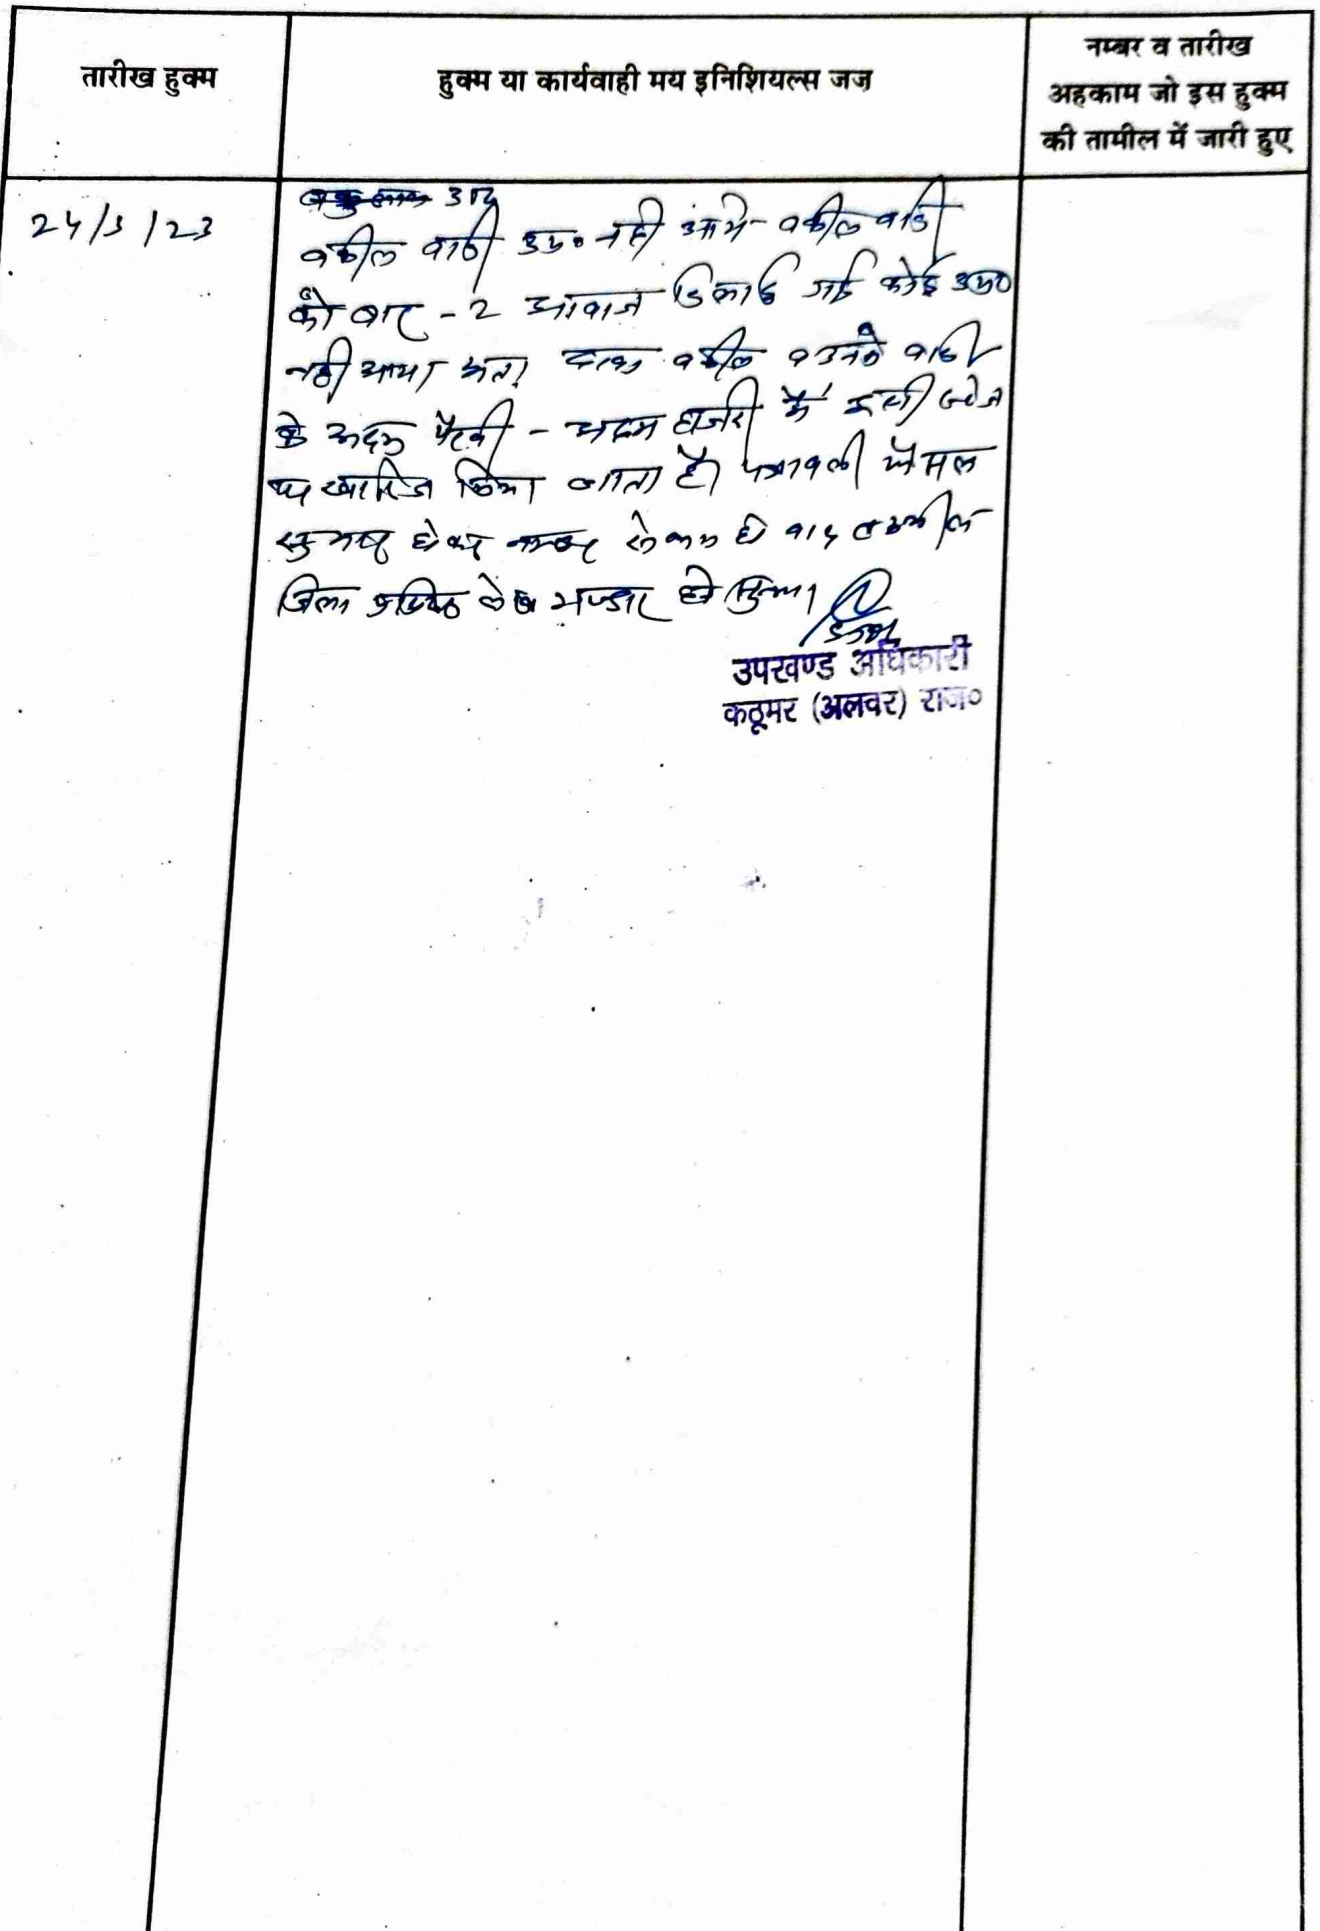 तारीख हुक्म
हुक्म या कार्यवाही मय इनिशियल्स जज
नम्बर व तारीख
अहकाम जो इस हुक्म
की तामील में जारी हुए
24/3/23
वकील वादी उप० नही आये वकील वादी
को बार-2 आवाज दिलाई गई कोई उप०
नही आया अतः वकील व उनके वादी
के अदम पैरवी - अदम हाजरी में इसी स्टेज
पर खारिज किया जाता है। पत्रावली फैसल
शुमार होकर नम्बर से कम हो बाद तकमील
जिला अभिलेख भण्डार हो।
उपखण्ड अधिकारी
कठूमर (अलवर) राज०